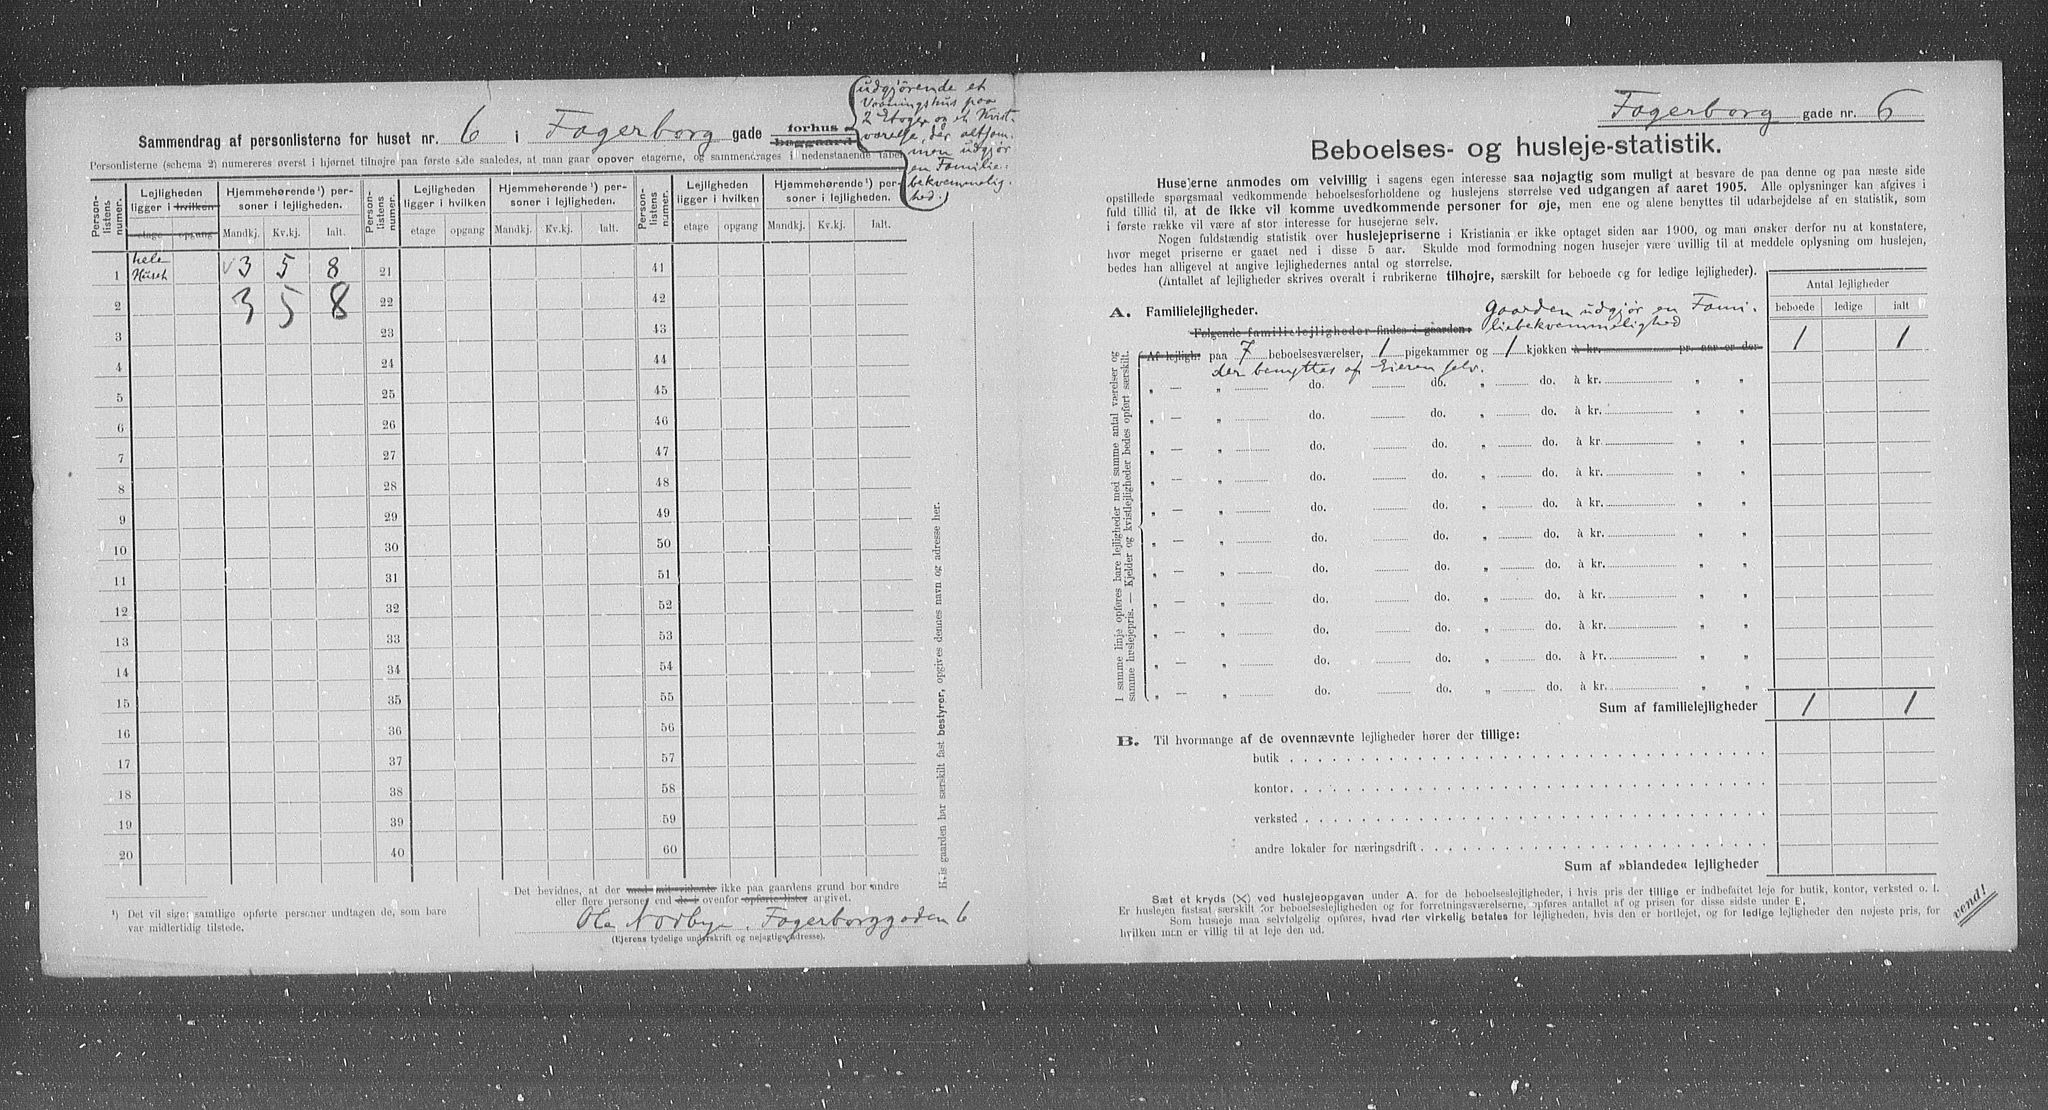 Sammendrag af personlisterne for huset nr. 6 i Fagerborg gade forhus
baggaard
udgjørende et
Vaaningshus paa
2 Etager og et Kvist-
værelse, der altsam-
men udgjør
en Familie-
bekvemmelig-
hed.
Personlisterne (schema 2) numereres øverst i hjørnet tilhøjre paa første side saaledes, at man gaar opover etagerne, og sammendrages i nedenstaaende tabel
Person-listens nummer. Lejligheden ligger i hvilken Hjemmehørende¹) per-soner i lejligheden. Person-listens numer. Lejligheden ligger i hvilken Hjemmehørende¹) per-soner i lejligheden. Person-listens numer. Lejligheden ligger i hvilken Hjemmehørende¹) per-soner i lejligheden.
etage opgang Mandkj. Kv.kj. Ialt. etage opgang Mandkj. Kv.kj. Ialt. etage opgang Mandkj. Kv.kj. Ialt.
1 hele Huset 3 5 8 21 41
2 3 5 8 22 42
3 23 43
4 24 44
5 25 45
6 26 46
7 27 47
8 28 48
9 29 49
10 30 50
11 31 51
12 32 52
13 33 53
14 34 54
15 35 55
16 36 56
17 37 57
18 38 58
19 39 59
20 40 60
¹) Det vil sige: samtlige opførte personer undtagen de, som bare
var midlertidig tilstede.
Det bevidnes, at der med mit vidende ikke paa gaardens grund bor andre
eller flere personer end de i ovenfor opførte lister angivet.
Ole Nordbye. Fagerborggaden 6
(Ejerens tydelige underskrift og nøjagtige adresse).
Hvis gaarden har særskilt fast bestyrer, opgives dennes navn og adresse her.
Fagerborg gade nr. 6
Beboelses- og husleje-statistik.
Husejerne anmodes om velvillig i sagens egen interesse saa nøjagtig som muligt at besvare de paa denne og paa næste side
opstillede spørgsmaal vedkommende beboelsesforholdene og huslejens størrelse ved udgangen af aaret 1905. Alle oplysninger kan afgives i
fuld tillid til, at de ikke vil komme uvedkommende personer for øje, men ene og alene benyttes til udarbejdelse af en statistik, som
i første række vil være af stor interesse for husejerne selv.
Nogen fuldstændig statistik over huslejepriserne i Kristiania er ikke optaget siden aar 1900, og man ønsker derfor nu at konstatere,
hvor meget priserne er gaaet ned i disse 5 aar. Skulde mod formodning nogen husejer være uvillig til at meddele oplysning om huslejen,
bedes han alligevel at angive lejlighedernes antal og størrelse.
(Antallet af lejligheder skrives overalt i rubrikerne tilhøjre, særskilt for beboede og for ledige lejligheder).
Antal lejligheder
beboede ledige ialt
A. Familielejligheder.
Gaarden udgjør en Fami-
liebekvemmelighed
Følgende familielejligheder findes i gaarden:
Af lejligh paa 7 beboelsesværelser, 1 pigekammer og 1 kjøkken à kr. pr. aar er der 1 1
der benyttes af Eieren selv.
„ — „ do. do. „ do. à kr. „ „
„ — „ do. do. „ do. à kr. „ „
„ — „ do. do. „ do. à kr. „ „
„ — „ do. do. „ do. à kr. „ „
„ — „ do. do. „ do. à kr. „ „
„ — „ do. do. „ do. à kr. „ „
„ — „ do. do. „ do. à kr. „ „
„ — „ do. do. „ do. à kr. „ „
„ — „ do. do. „ do. à kr. „ „
„ — „ do. do. „ do. à kr. „ „
„ — „ do. do. „ do. à kr. „ „
I samme linje opføres bare lejligheder med samme antal værelser og
samme huslejepris. — Kjelder og kvistlejligheder bedes opført særskilt.
Sum af familielejligheder 1 1
B. Til hvormange af de ovennævnte lejligheder hører der tillige:
butik
kontor
verksted
andre lokaler for næringsdrift
Sum af »blandede« lejligheder
Sæt et kryds (X) ved huslejeopgaven under A. for de beboelseslejligheder, i hvis pris der tillige er indbefattet leje for butik, kontor, verksted o. l.
Er huslejen fastsat særskilt for beboelseslejligheden og for forretningsværelserne, opføres antallet af og prisen for disse sidste under E.
Som husleje maa selvfølgelig opføres, hvad der virkelig betales for lejligheden, hvis den er bortlejet, og for ledige lejligheder den nøjeste pris, for
hvilken men er villig til at leje den ud.
vend!